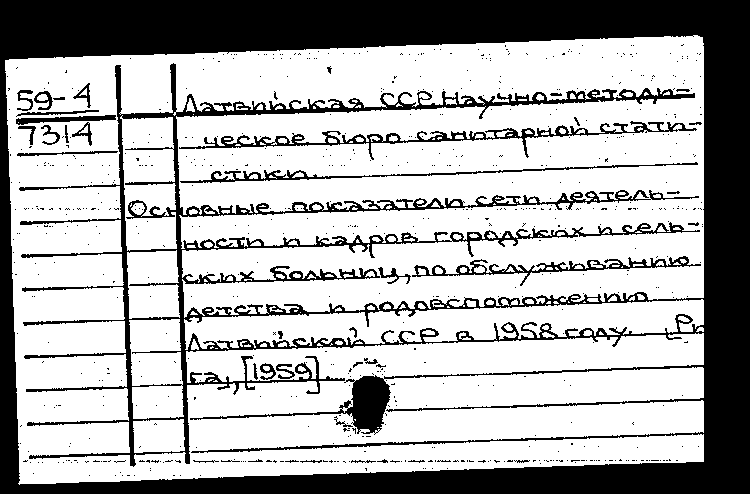 59-4
7314
Латвийская ССР. Научно-методи-
ческое бюро санитарной стати-
стики.
Основные показатели сети деятель-
ности и кадров городских и сель-
ских больниц, по обслуживанию
детства и родовспоможению
Латвийской ССР в 1958 году. [Ри
га], [1959].